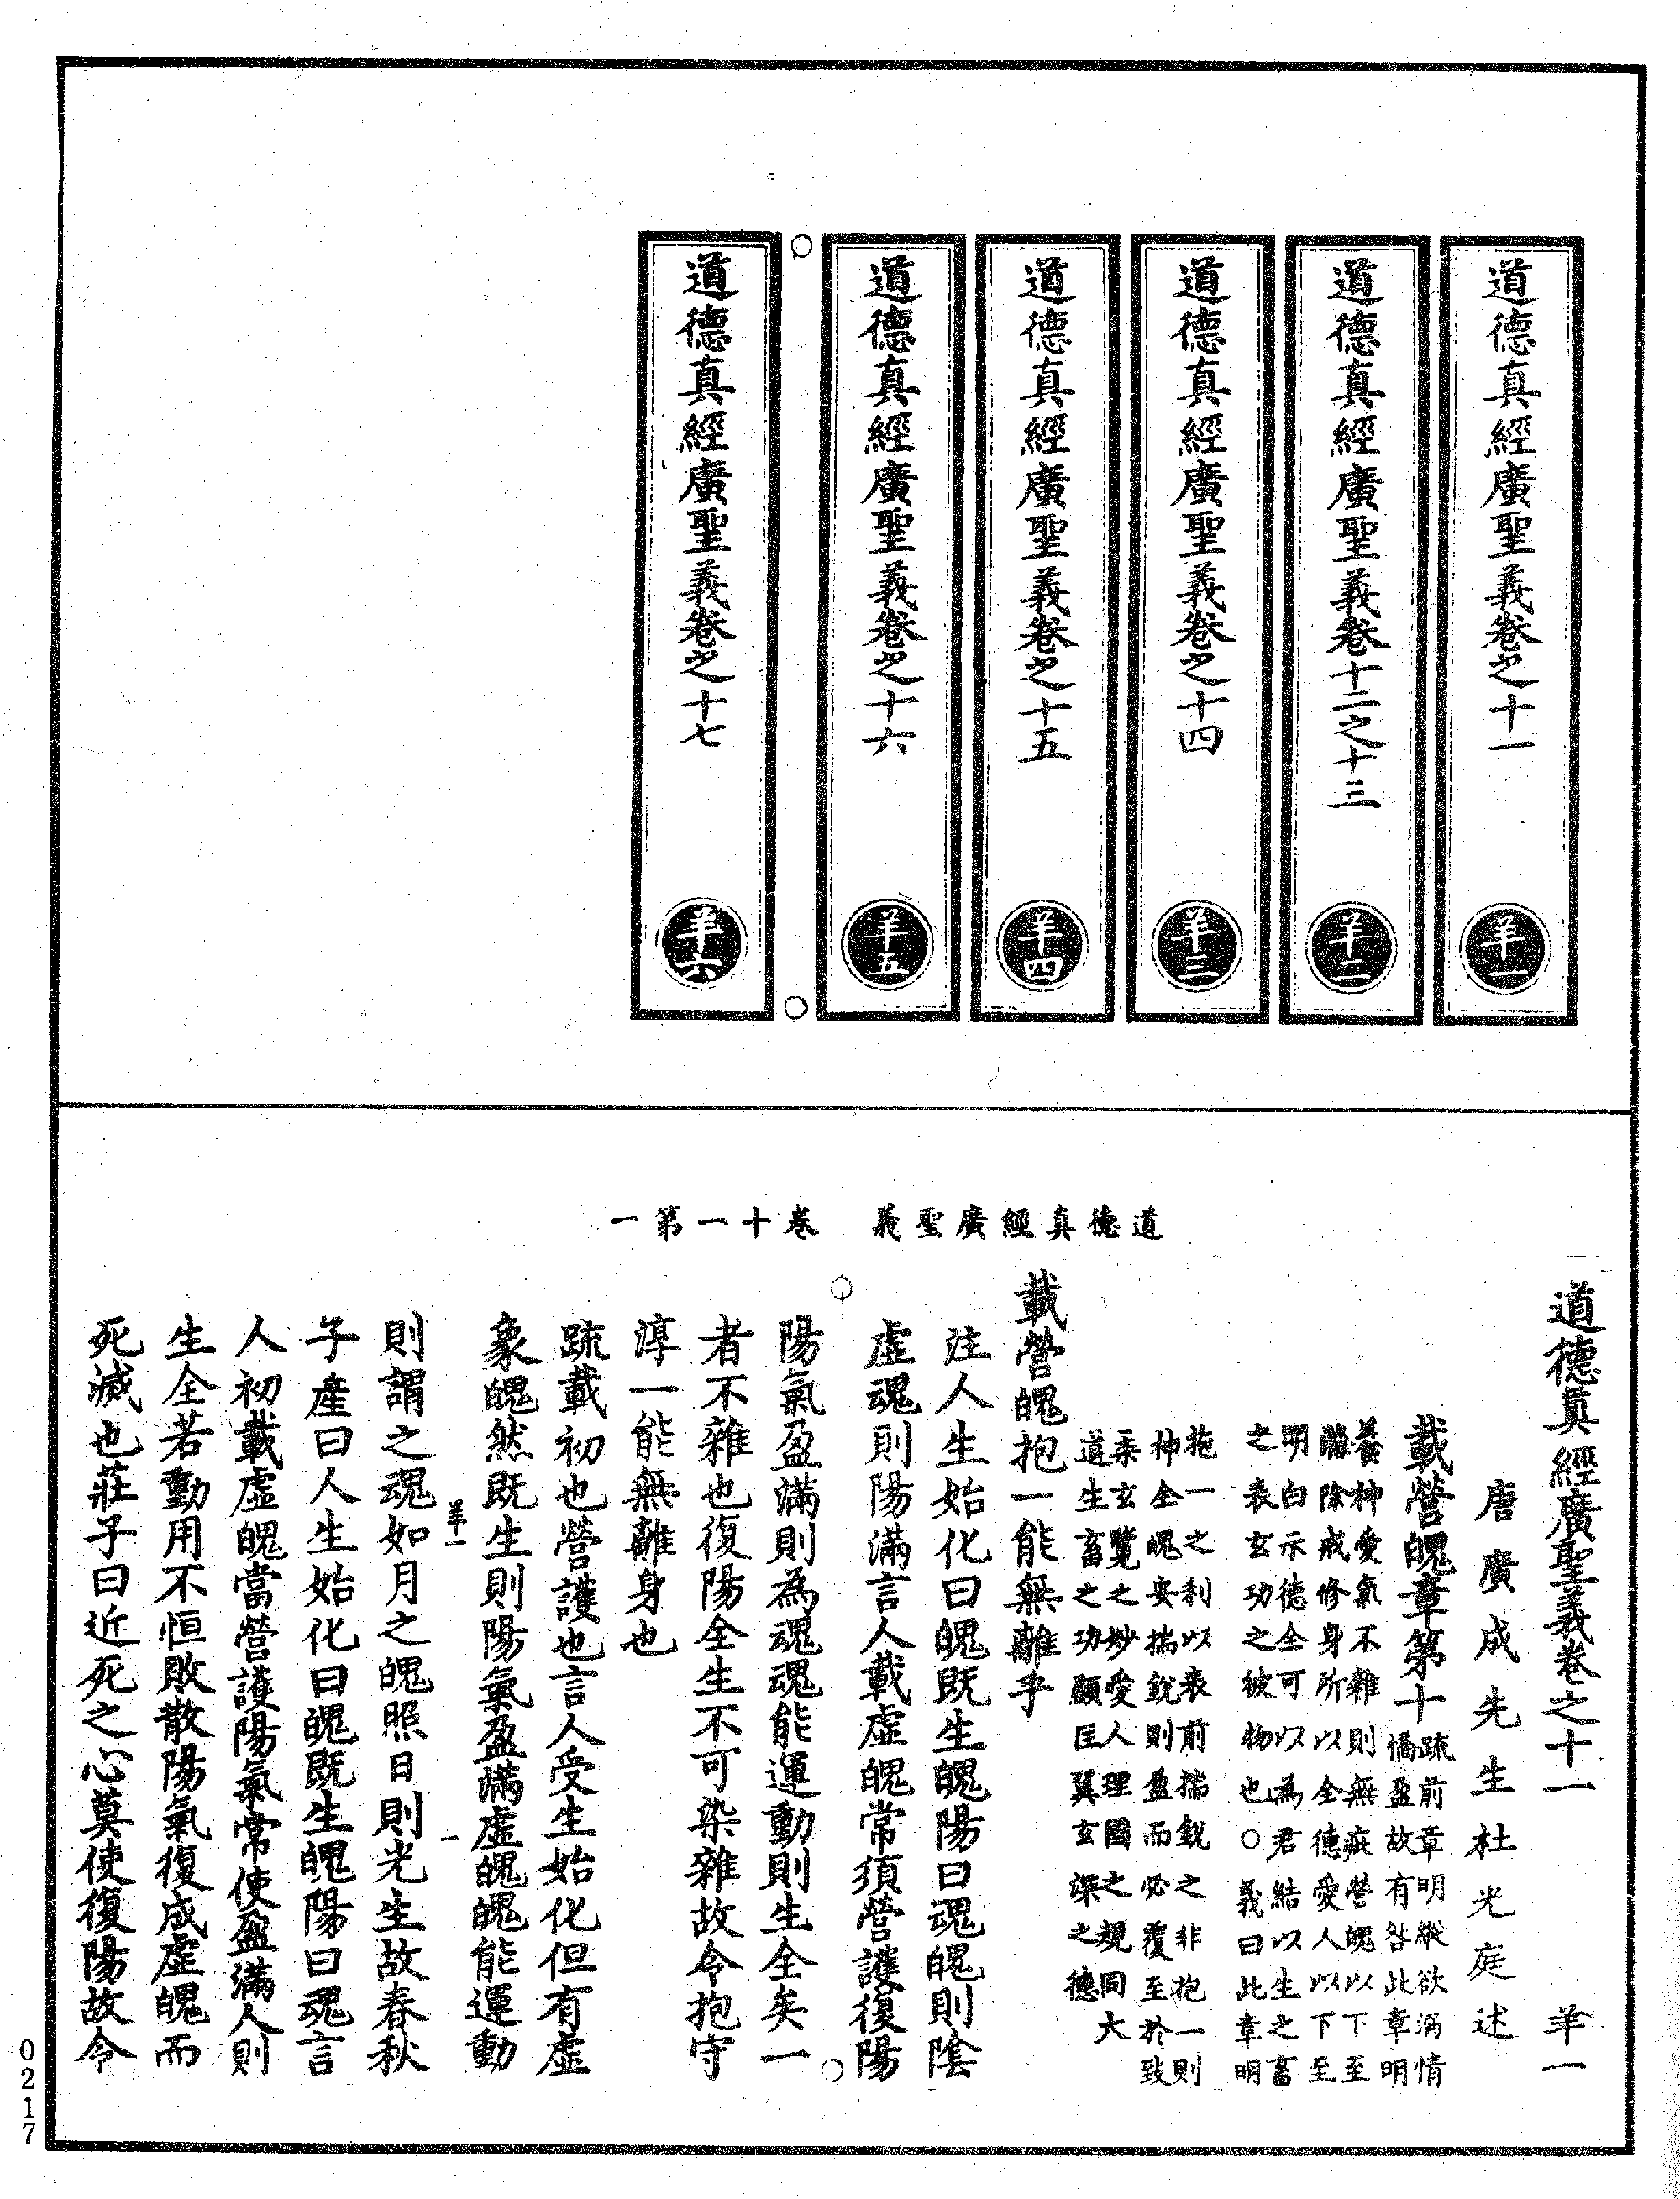 道德真經廣聖義卷之十一
羊一
道德真經廣聖義卷十二之十三
羊二
道德真經廣聖義卷之十四
羊三
道德真經廣聖義卷之十五
羊四
道德真經廣聖義卷之十六
羊五
道德真經廣聖義卷之十七
羊六
道德真經廣聖義 卷十一第一
道德真經廣聖義卷之十一 羊一
唐廣成先生杜光庭述
載營魄章第十
疏前章明縱欲滿情
憍盈故有咎此章明
養神愛氣不雜則無疵營魄以下至
滌除戒修身所以全德愛人以下至
明白示德全可以為君結以生之畜
之表玄功之被物也○義曰此章明
抱一之利以表前揣銳之非抱一則
神全魄安揣銳則盈而必覆至於致
柔玄覽之妙愛人理國之規同大
道生畜之功顯匡翼玄深之德
載營魄抱一能無離乎
注人生始化曰魄既生魄陽曰魂魄則陰
虛魂則陽滿言人載虛魄常須營護復陽
陽氣盈滿則為魂魂能運動則生全矣一
者不雜也復陽全生不可染雜故令抱守
淳一能無離身也
疏載初也營護也言人受生始化但有虛
象魄然既生則陽氣盈滿虛魄魄能運動
羊一 一
則謂之魂如月之魄照日則光生故春秋
子產曰人生始化曰魄既生魄陽曰魂言
人初載虛魄當營護陽氣常使盈滿人則
生全若動用不恒敗散陽氣復成虛魄而
死滅也莊子曰近死之心莫使復陽故令
0217